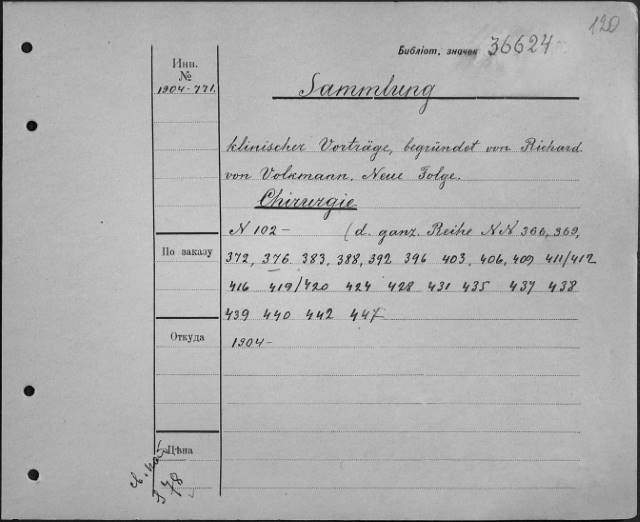 120
Библіот. значек 36624
Инв. №
1904-771.
Sammlung
klinischer Vorträge, begründet von Richard
von Volkmann. Neue Folge.
Chirurgie
N 102 - (d. ganz. Reihe NN 366, 369,
По заказу
372, 376 383, 388, 392 396 403, 406, 409 411/412
416 419/420 424 428 431 435 437 438
439 440 442 447
Откуда
1904-
Цѣна
78